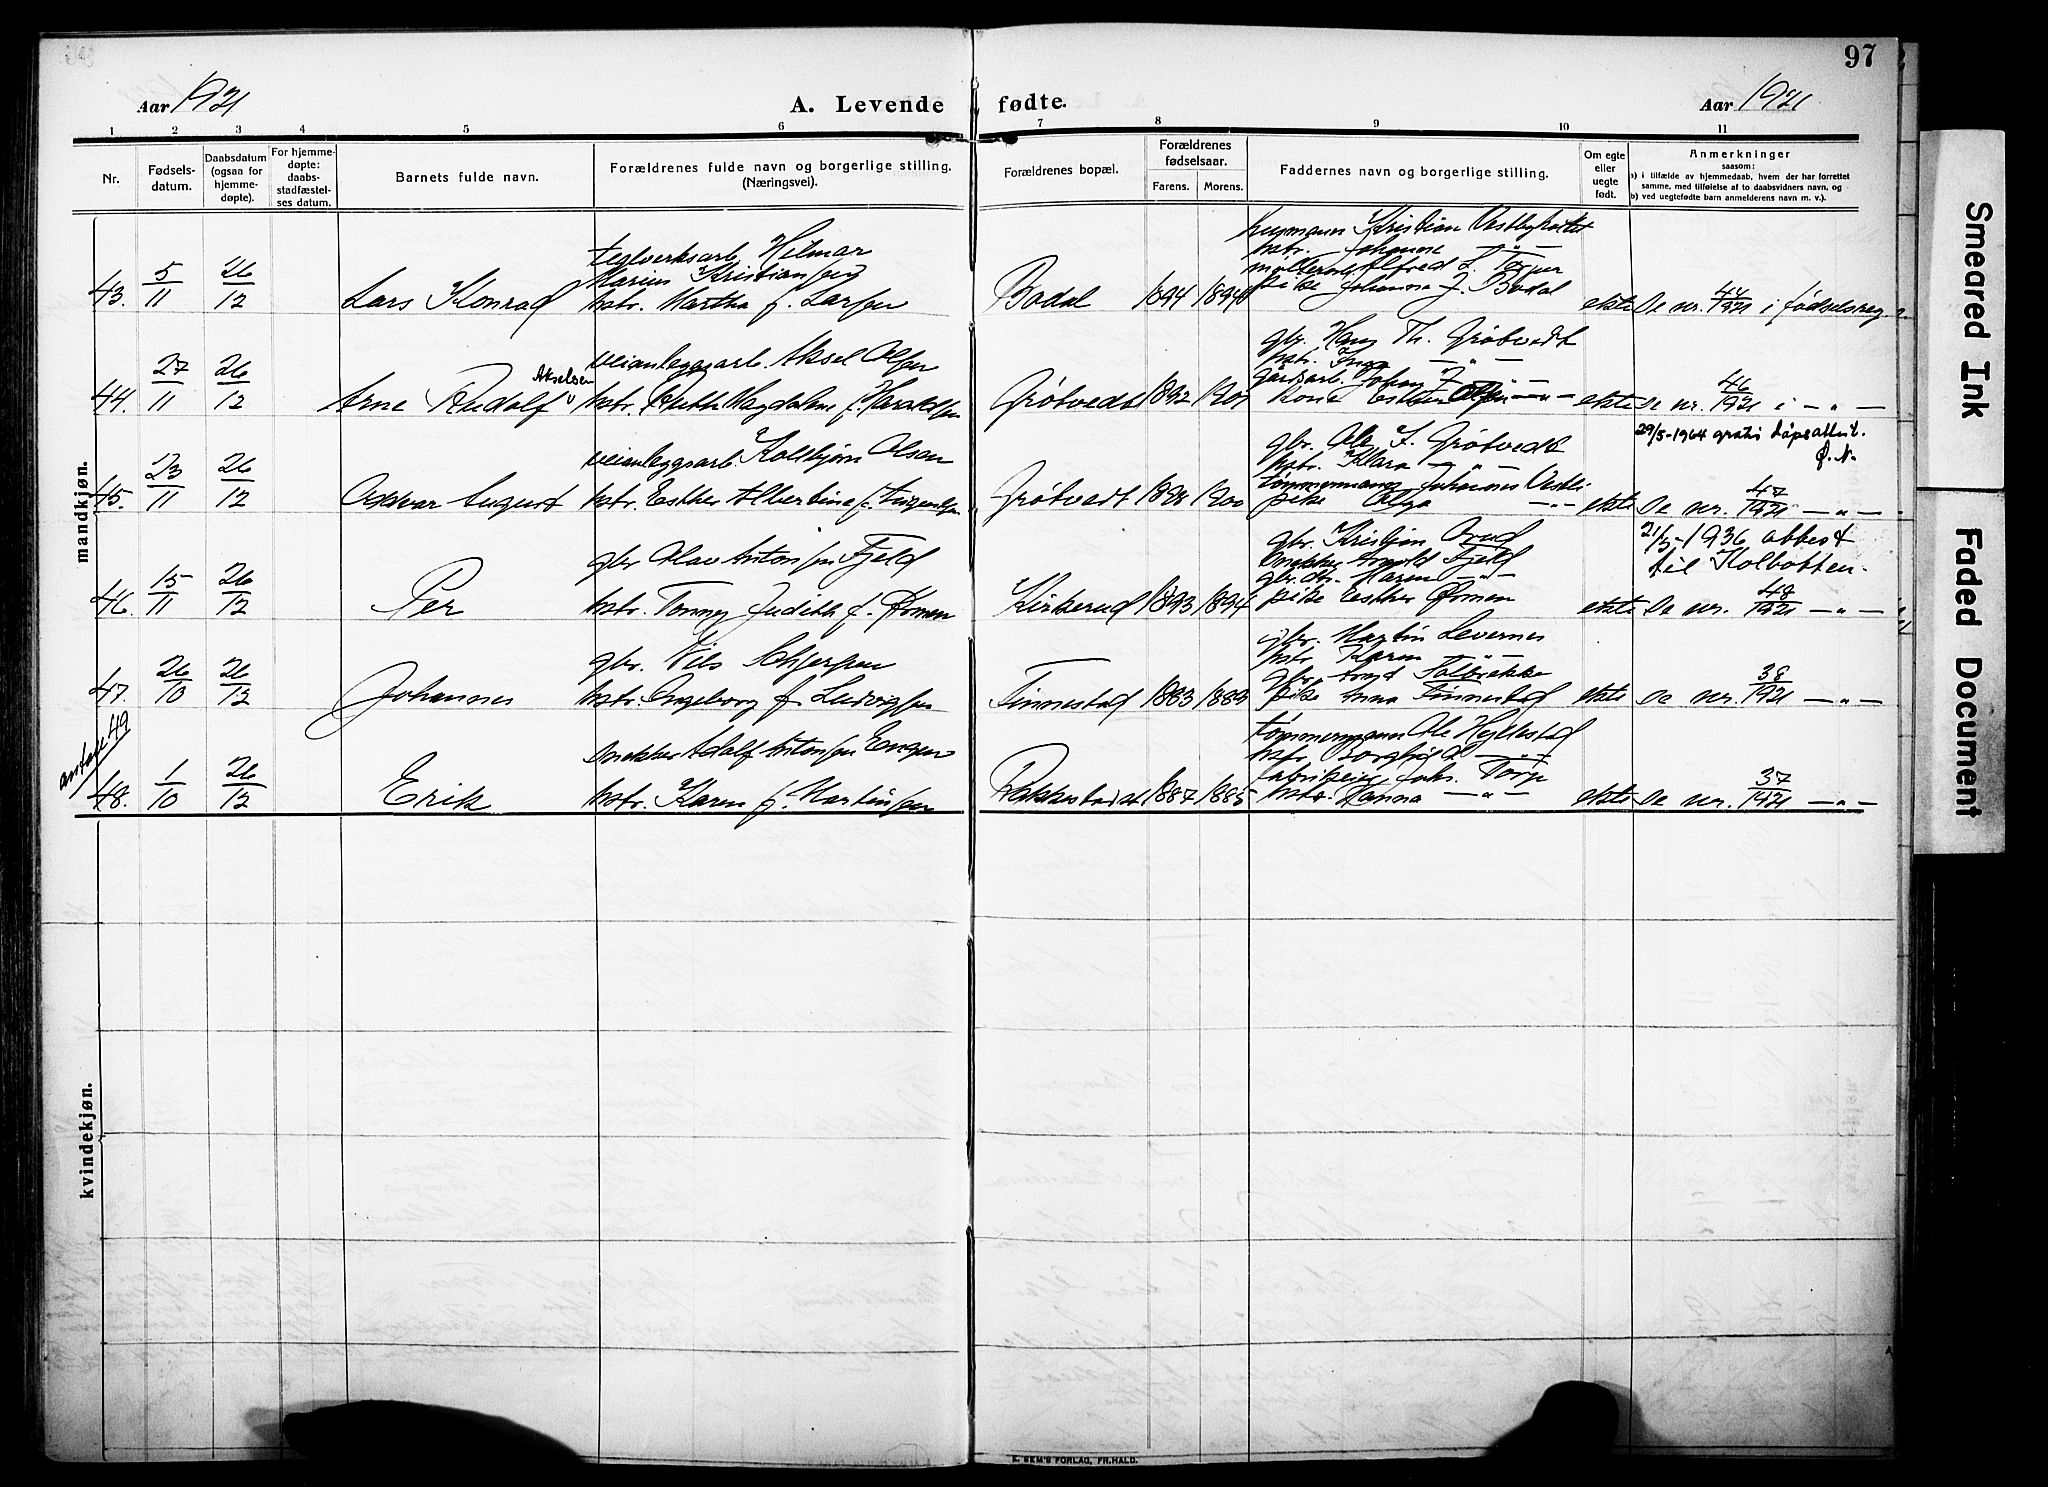 97
Aar 1921
A. Levende fødte.
Aar 1921
1 2 3 4 5 6 7 8 9 10 11
Nr.
Fødsels-
datum.
Daabsdatum
(ogsaa for
hjemme-
døpte).
For hjemme-
døpte:
daabs-
stadfæstel-
ses datum.
Barnets fulde navn.
Forældrenes fulde navn og borgerlige stilling.
(Næringsvei).
Forældrenes bopæl.
Forældrenes
fødselsaar.
Farens. Morens.
Faddernes navn og borgerlige stilling.
Om egte
eller
uegte
født.
Anmerkninger
saasom:
a) i tilfælde av hjemmedaab, hvem der har forrettet
samme, med tilføielse af to daabsvidners navn, og
b) ved uegtefødte barn anmelderens navn m. v.).
mandkjøn.
43. 5/11 26/12 Lars Konrad
teglverksarb. Hilmar
Marius Kristiansen
hstr. Martha f. Larsen
Bodal 1894 1894
Kristian Vestbyholtet
hstr. Johanne — " —
Alfred L. Torper
pike Johanne J. Bodal
ekte Se nr. 44/1921 i fødselsreg.
44. 27/11 26/12 Arne Rudolf Akselsen
veianleggsarb. Aksel Olsen
hstr. Ruth Magdalene f. Haraldsen
Grötvedt 1892
gbr. Hans Th. Grötvedt
hstr. Inga — " —
gårdsarb. Johan J. — " —
Esther Olsen — " —
ekte Se nr. 46/1921 i — " —
29/5-1964 gratis dåpsattest.
Ø.N.
45. 23/11 26/12 Oddvar August
veianleggsarb. Kolbjørn Olsen
hstr. Esther Albertine f. Jørgensen
Grötvedt 1898 1900
gbr. Ole J. Grötvedt
hstr. Klara — " —
tømmermann Johannes Østli
pike Olga — " —
ekte Se nr. 47/1921 — " —
46. 15/11 26/12 Per
gbr. Olav Antonsen Fjeld
hstr. Tonny Judith f. Homen
Kirkerud 1893 1894
gbr. Kristian Brud
snekker Arnold Fjeld
gbr.dtr. Maren — " —
pike Esther Ømen
21/3-1936 attest
til Kolbotten.
ekte Se nr. 48/1921 — " —
47. 26/10 26/12 Johannes
gbr. Nils Schjersen
hstr. Ingeborg f. Ludvigsen
Finnestad 1883 1889
gbr. Martin Levernes
hstr. Karen — " —
gbr. Arnt Solbrekke
pike Anna Finnestad
ekte Se nr. 38/1921 — " —
antall 49
48. 1/10 26/12 Erik
snekker Adolf Antonsen Enger
hstr. Karen f. Martinsen
Rakkestad 1887 1885
tømmermann Ole Hyllestad
hstr. Borghild — " —
fabrikeier Johs. Torp
hstr. Hanna — " —
ekte Se nr. 37/1921 — " —
kvindekjøn.
E. SEM'S FORLAG, FR.HALD.
Smeared Ink
Faded Document